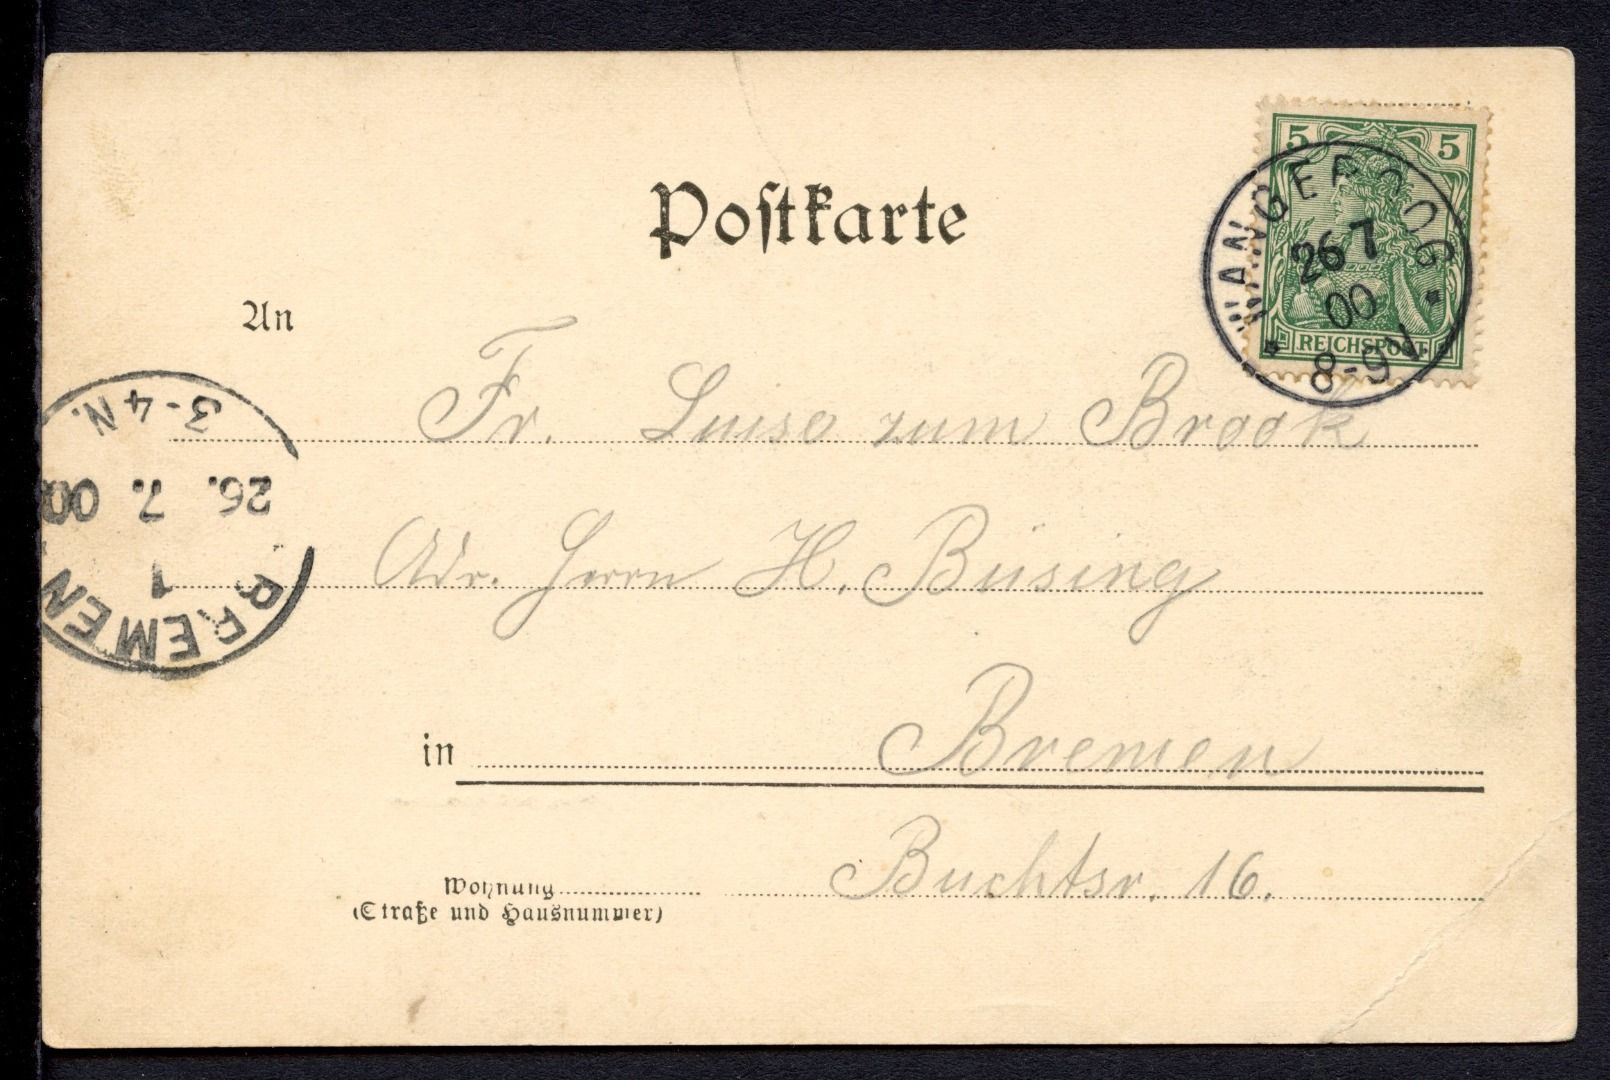 Postkarte
5 5
REICHSPOST
WANGEROOG
26 7
00
8-9V
An
3-4N.
26. 7. 00
1
BREMEN
Fr. Luise zum Brook
Adr. Herrn H. Büsing
in Bremen
Buchtsr. 16.
Wohnung
(Straße und Hausnummer)